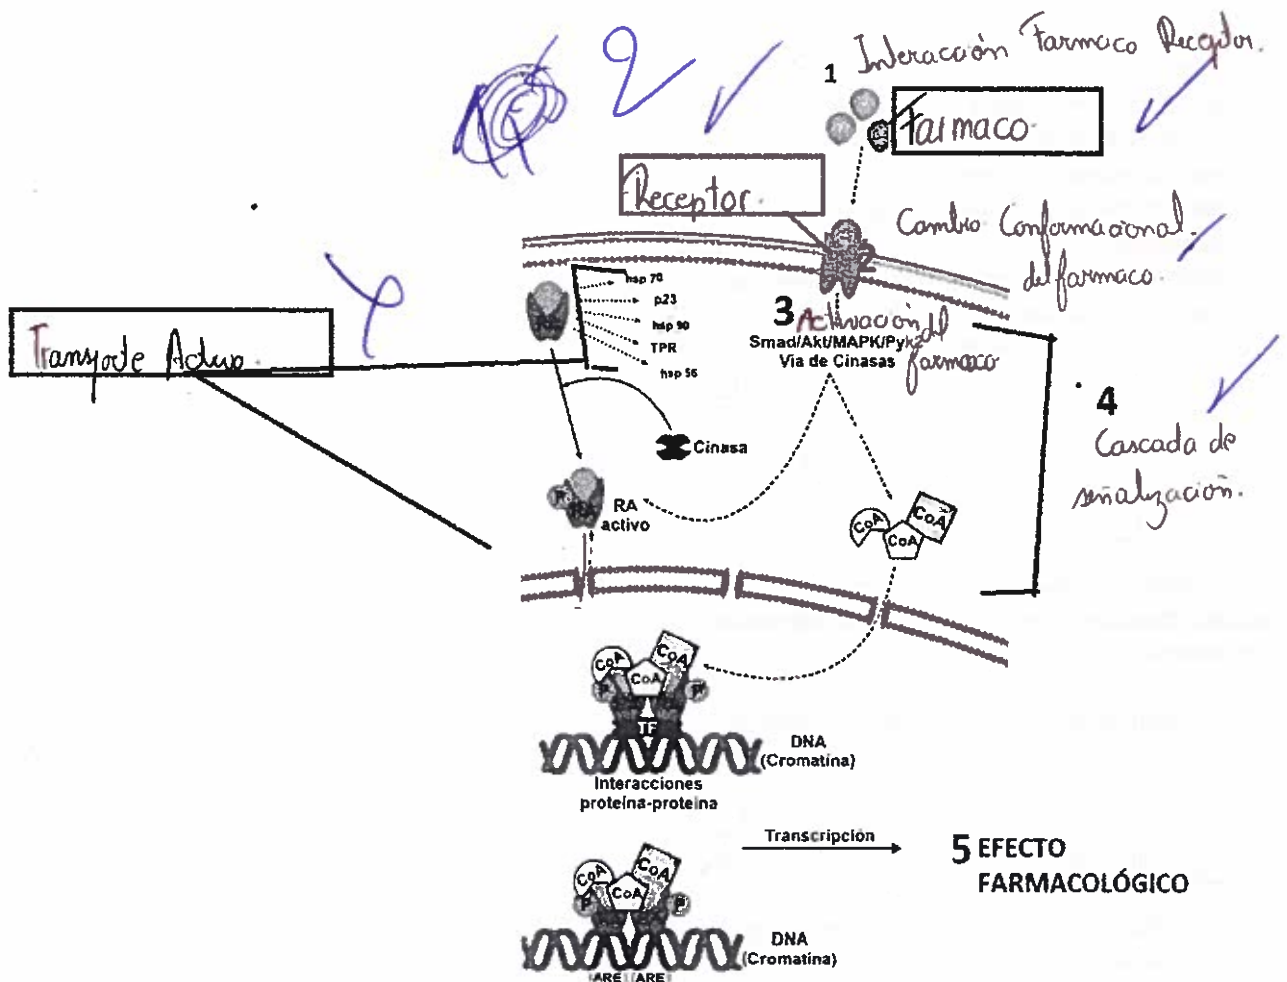 2
1 Interacción Farmaco Receptor.
Farmaco.
Receptor.
2 Cambio Conformacional
del farmaco.
hsp 70
p23
hsp 90
TPR
hsp 56
3 Activación del
farmaco
Smad/Akt/MAPK/Pyk2
Via de Cinasas
Transporte Activo
4
Cascada de
señalización.
Cinasa
P
RA
RA
activo
CoA
CoA
CoA
CoA
CoA
CoA
P
P
TF
DNA
(Cromatina)
Interacciones
proteína-proteína
Transcripción
5 EFECTO
FARMACOLÓGICO
CoA
CoA
CoA
P
P
DNA
(Cromatina)
ARE ARE